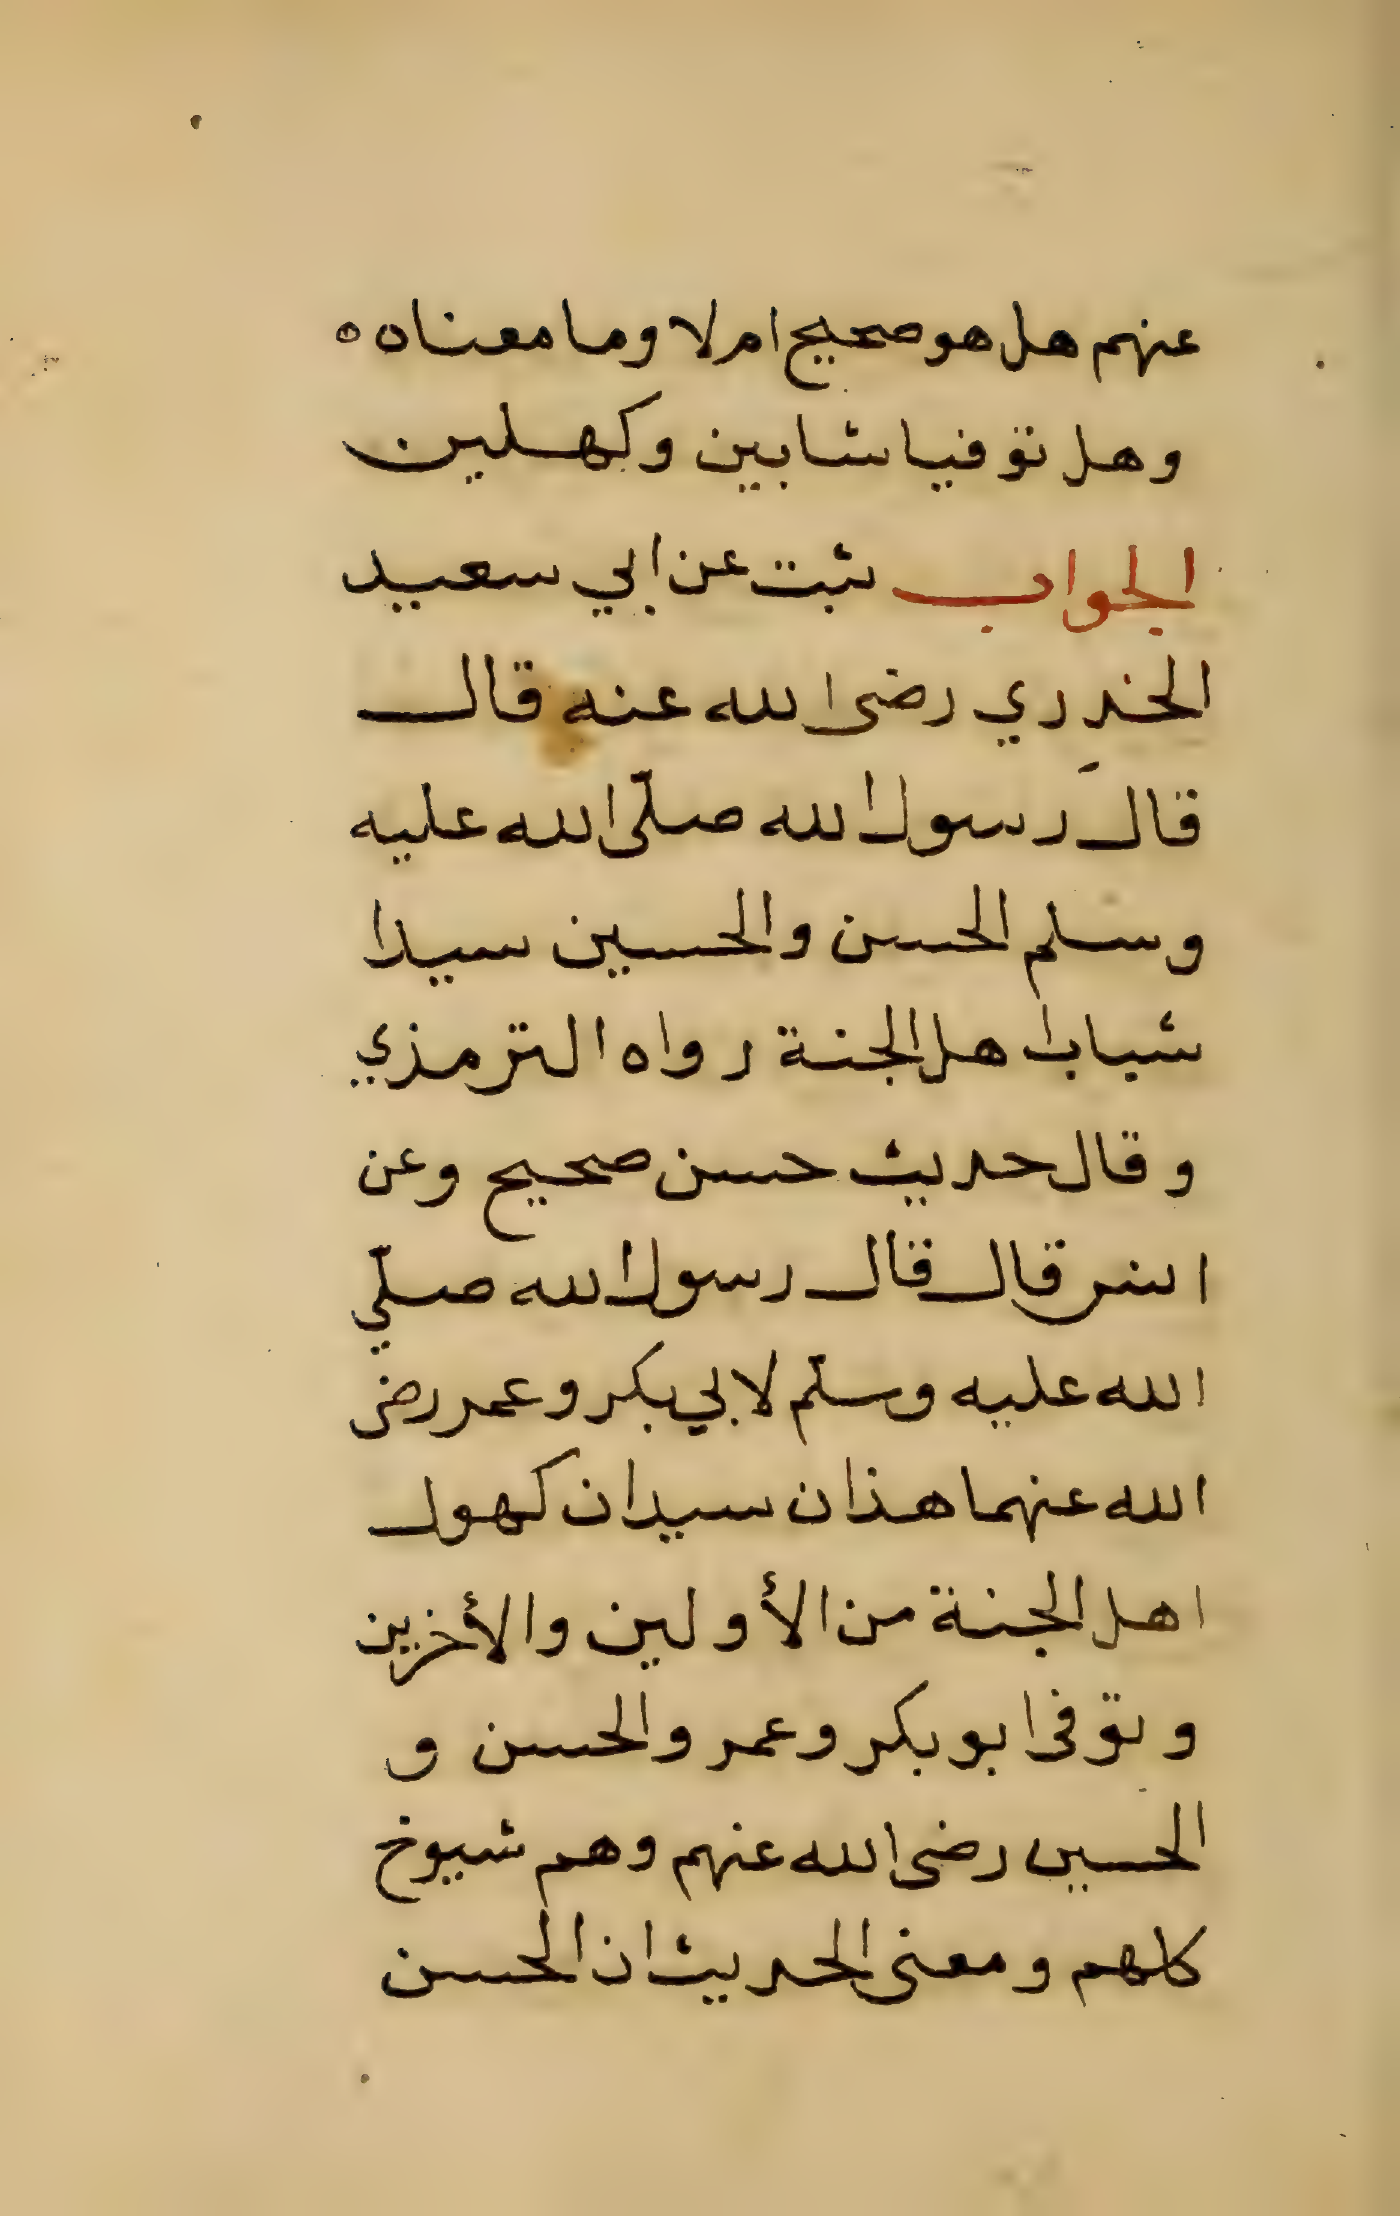 عنهم هل هو صحيح ام لا وما معناه ه
وهل توفيا شابين وكهلين
الجواب ثبت عن ابي سعيد
الخدري رضى الله عنه قال
قال رسول الله صلّى الله عليه
وسلم الحسن والحسين سيدا
شباب اهل الجنة رواه الترمذي
وقال حديث حسن صحيح وعن
انس قال قال رسول الله صلّي
الله عليه وسلّم لابي بكر وعمر رضى
الله عنهما هذان سيدان كهول
اهل الجنة من الأولين والأخرين
وتوفى ابو بكر وعمر والحسن و
الحسين رضى الله عنهم وهم شيوخ
كلهم ومعنى الحديث ان الحسن